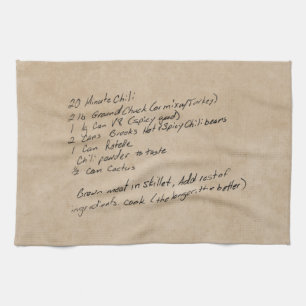 20 Minute Chili
2 lb Ground Chuck (or mix w/Turkey)
1 lg Can V8 (Spicy good)
2 Cans Brooks Hot & Spicy Chili beans
1 Can Rotelle
Chili powder to taste
½ can Cactus
Brown meat in skillet, Add rest of
ingredients. cook (the longer, the better)